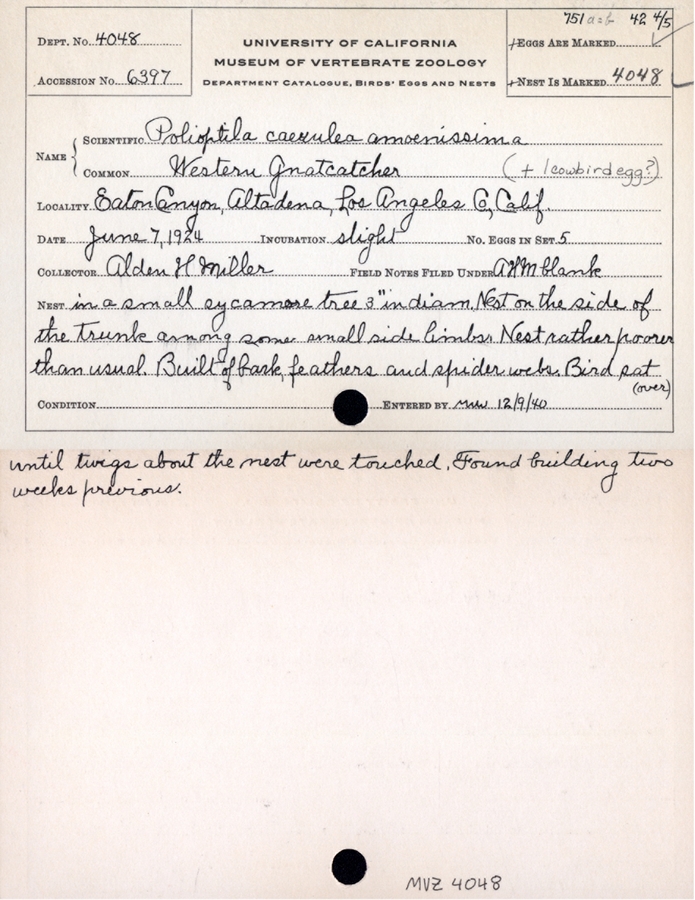 751 a=b 42 4/5
DEPT. NO. 4048
UNIVERSITY OF CALIFORNIA
+EGGS ARE MARKED
MUSEUM OF VERTEBRATE ZOOLOGY
ACCESSION NO. 6397
DEPARTMENT CATALOGUE, BIRDS' EGGS AND NESTS
+NEST IS MARKED 4048
NAME { SCIENTIFIC Polioptila caerulea amoenissima
COMMON Western Gnatcatcher (+ 1 cowbird egg?)
LOCALITY Eaton Canyon, Altadena, Los Angeles Co, Calif.
DATE June 7, 1924 INCUBATION slight NO. EGGS IN SET 5
COLLECTOR Alden H Miller FIELD NOTES FILED UNDER AHM blank
NEST in a small sycamore tree 3" in diam. Nest on the side of
the trunk among some small side limbs. Nest rather poorer
than usual. Built of bark, feathers and spider webs. Bird sat
(over)
CONDITION ENTERED BY 12/9/40
until twigs about the nest were touched. Found building two
weeks previous.
MVZ 4048